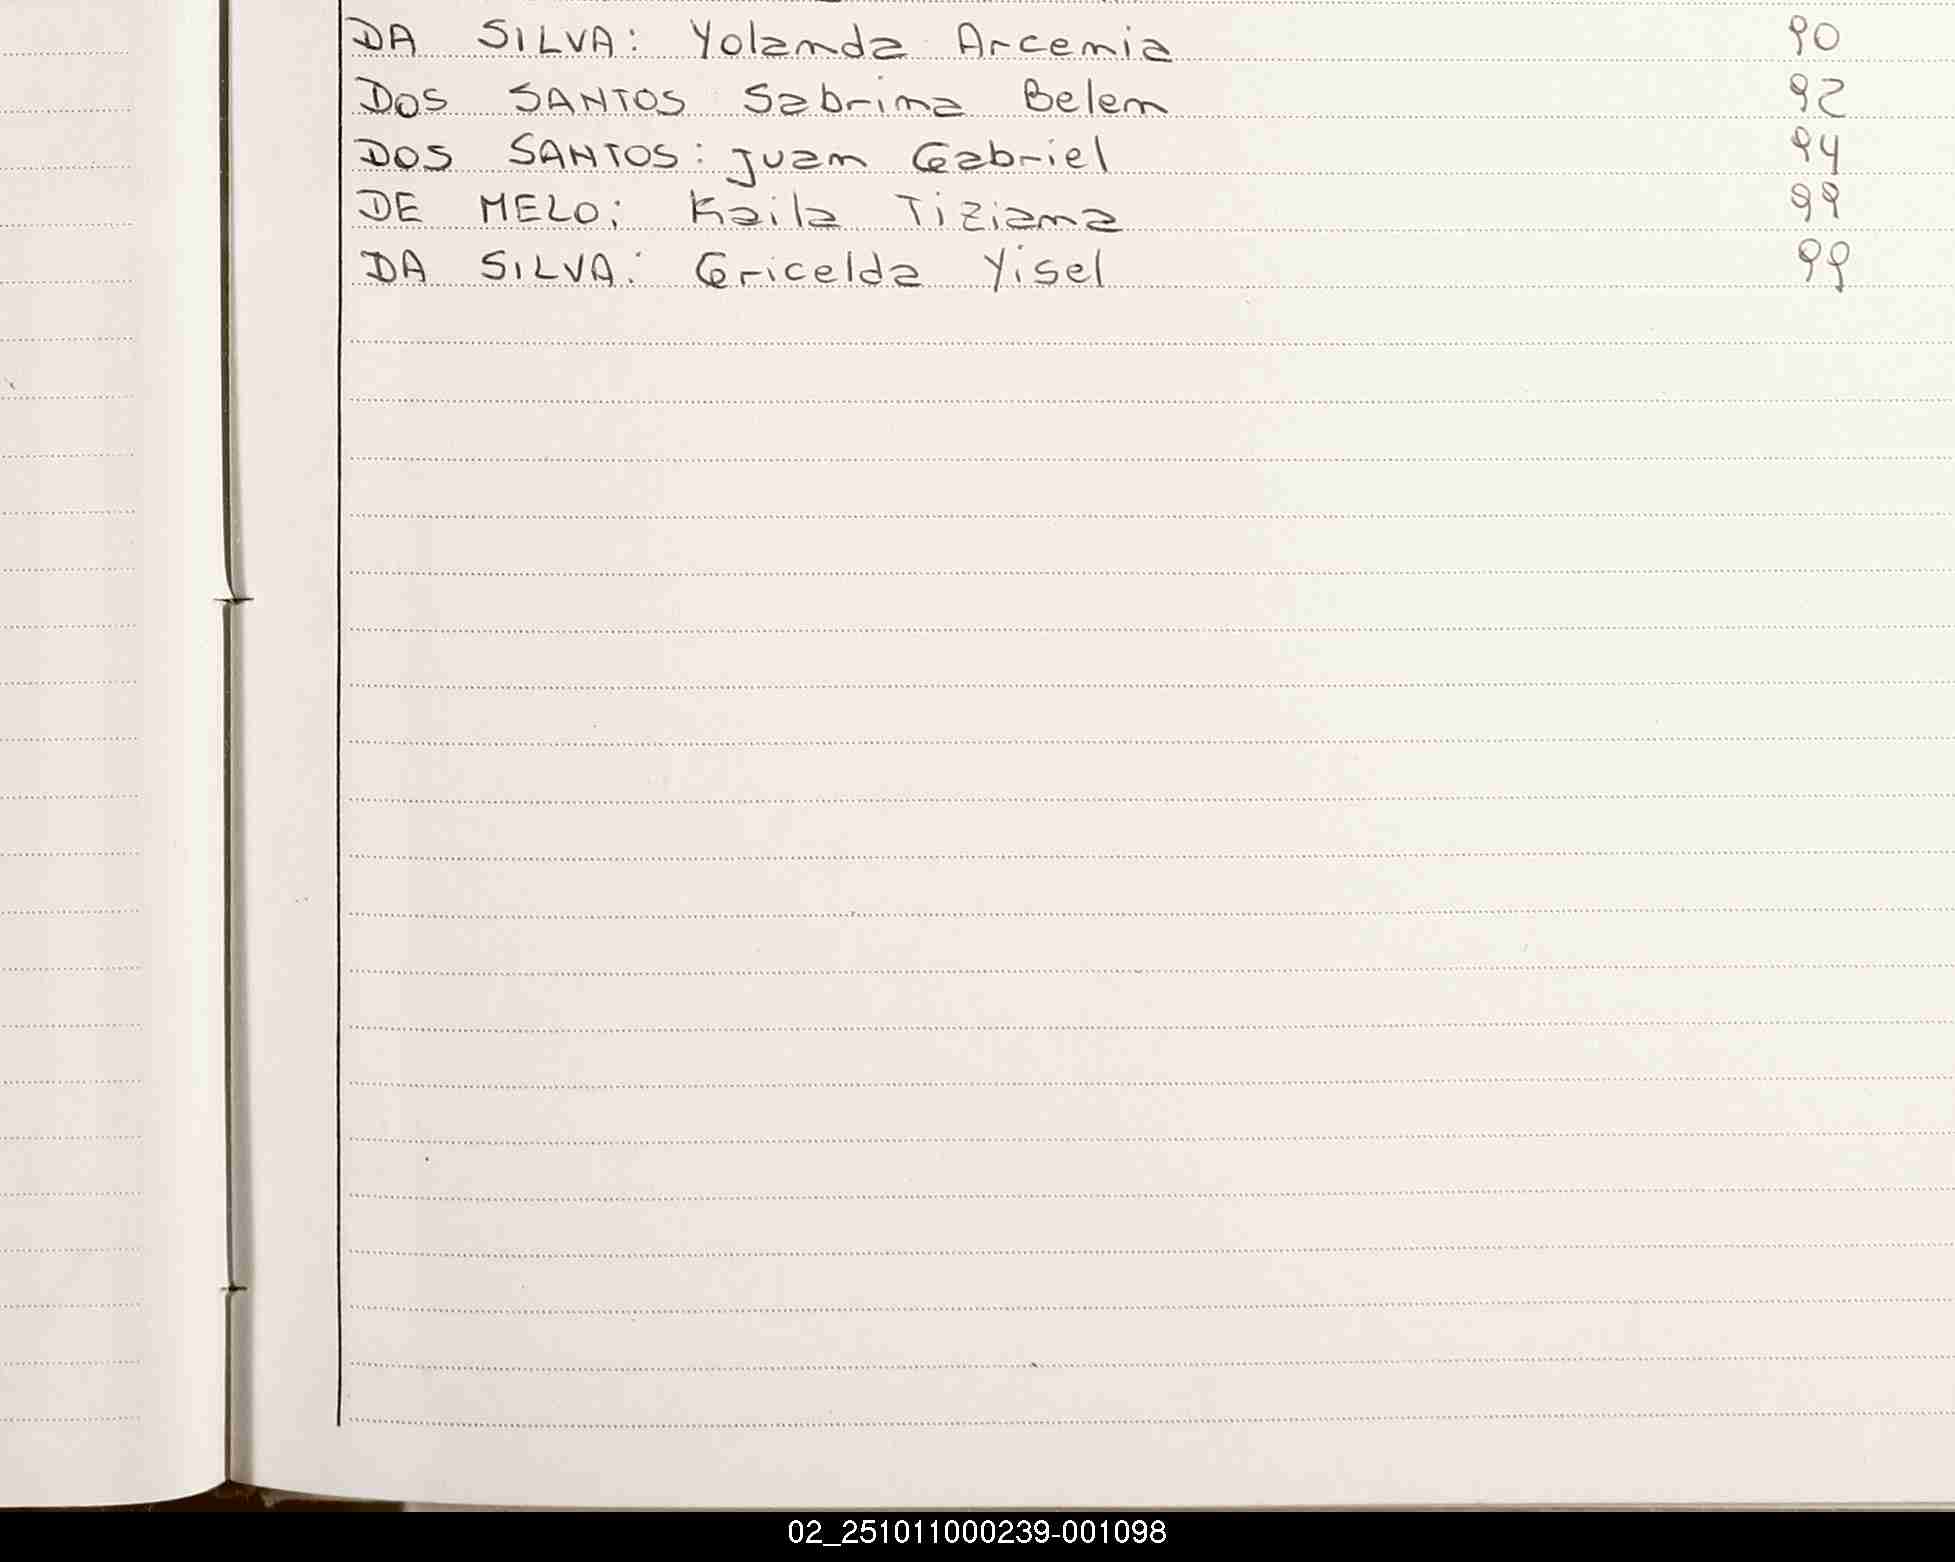 DA SILVA: Yolanda Arcenia 90
DOS SANTOS Sabrina Belen 92
DOS SANTOS: Juan Gabriel 94
DE MELO: Kaila Tiziana 99
DA SILVA: Gricelda Yisel 99
02_251011000239-001098